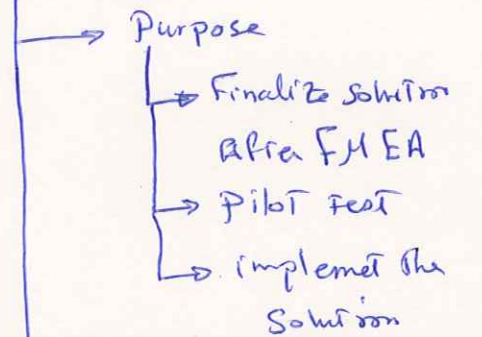 Purpose
Finalize solution
after FMEA
Pilot Test
implemet the
Solution